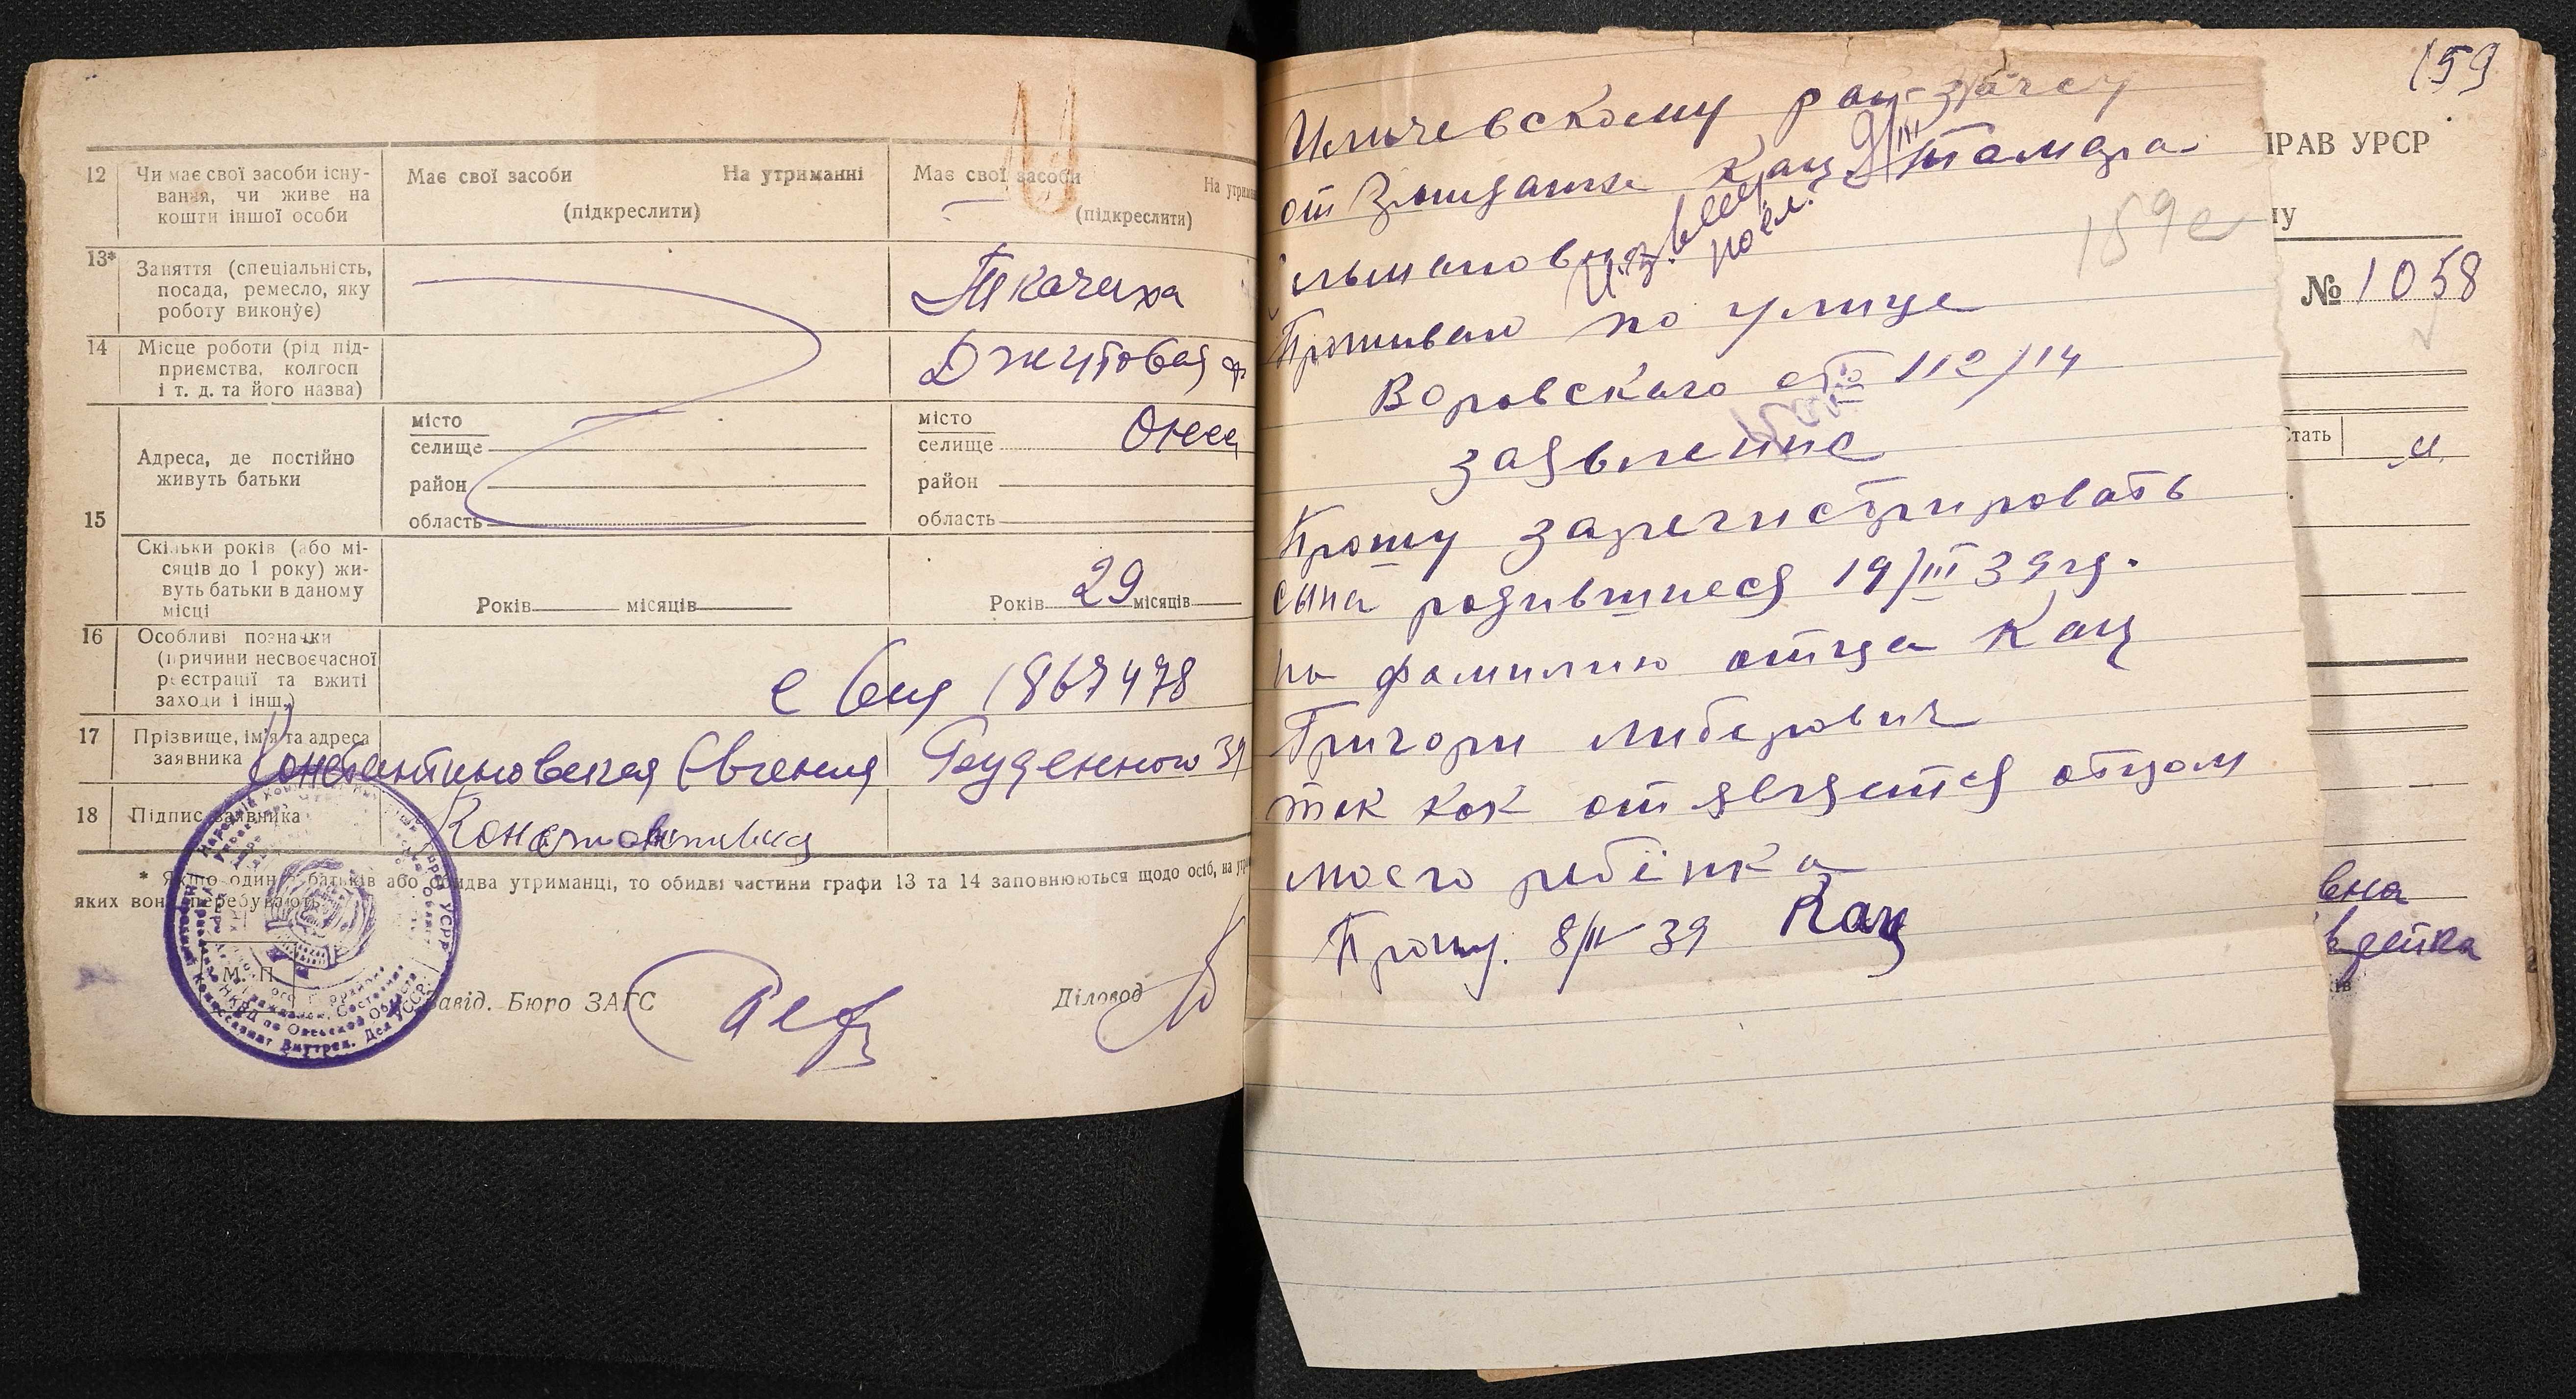 12 Чи має свої засоби існу-
вання, чи живе на
кошти іншої особи
Має свої засоби На утриманні
(підкреслити)
Має свої засоби На утриман
(підкреслити)
13* Заняття (спеціальність,
посада, ремесло, яку
роботу виконує)
Ткачиха
14 Місце роботи (рід під-
приємства, колгосп
і т. д. та його назва)
Джутовая ф
15 Адреса, де постійно
живуть батьки
місто
селище
район
область
місто
селище
район
область
Скільки років (або мі-
сяців до 1 року) жи-
вуть батьки в даному
місці
Років місяців
Років 29 місяців
16 Особливі позначки
(причини несвоєчасної
реєстрації та вжиті
заходи і інш.)
1867478
17 Прізвище, ім'я та адреса
заявника
Константиновская Евгения
18 Підпис заявника
* Якщо один з батьків або обидва утриманці, то обидві частини графи 13 та 14 заповнюються щодо осіб, на утр
яких вони перебувають.
М. П.
Завід. Бюро ЗАГС
Діловод
Иличевскому рай-загсу
от Кац Тамара
Проживаю по улице
Воровского 112/14
заявление
Прошу зарегистрировать
сына родившиеся 19/III 39 гд.
на фамилию отца Кац
Григори Либерович
так как от является отцом
моего ребёнка
Прошу. 39 Кац
159
ПРАВ УРСР
№ 1058
Стать м
вна